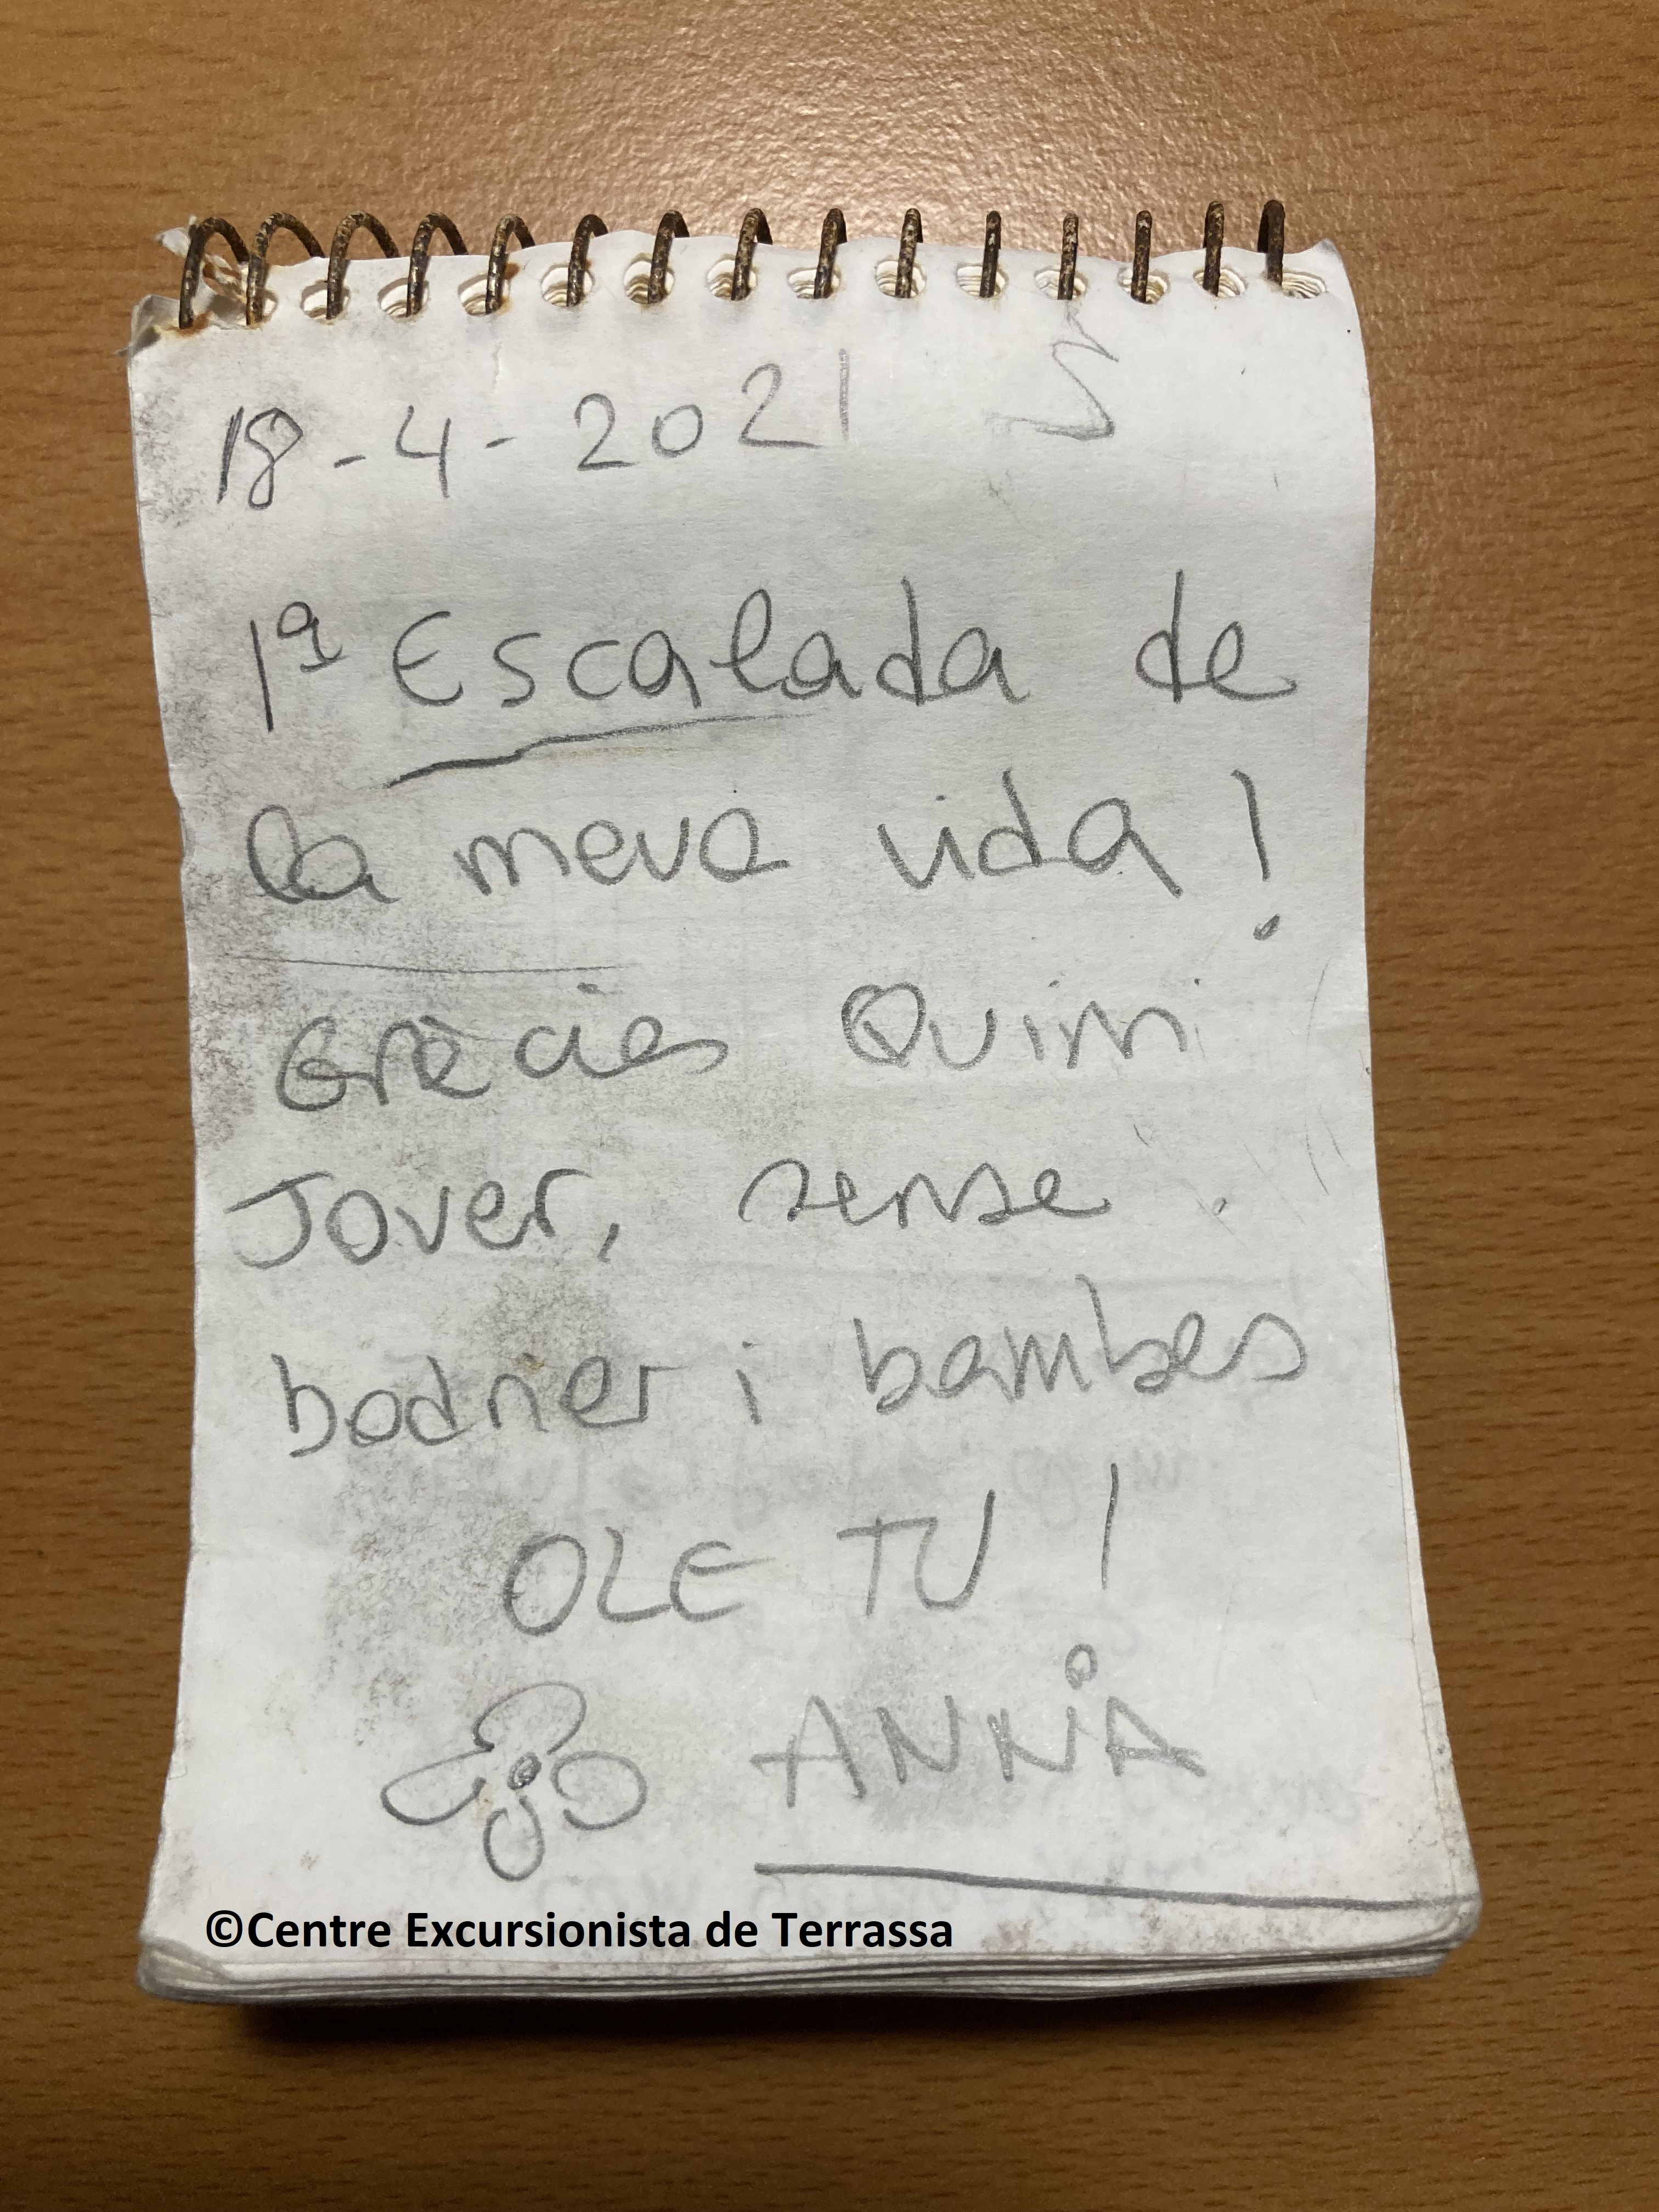 18-4-2021
1ª Escalada de
la meva vida!
Gràcies Quim
Jover, sense
bodrier i bambes
OLE TU!
ANNA
©Centre Excursionista de Terrassa